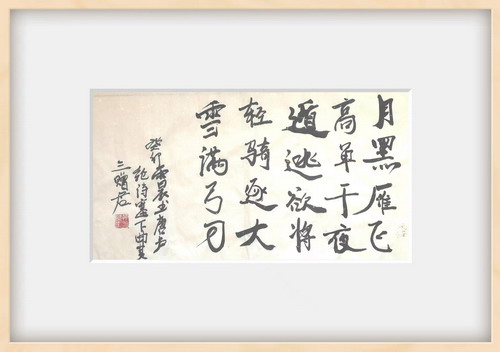 月黑雁飞
高单于夜
遁逃欲将
轻骑逐大
雪满弓刀
癸卯
诗塞下曲其
三